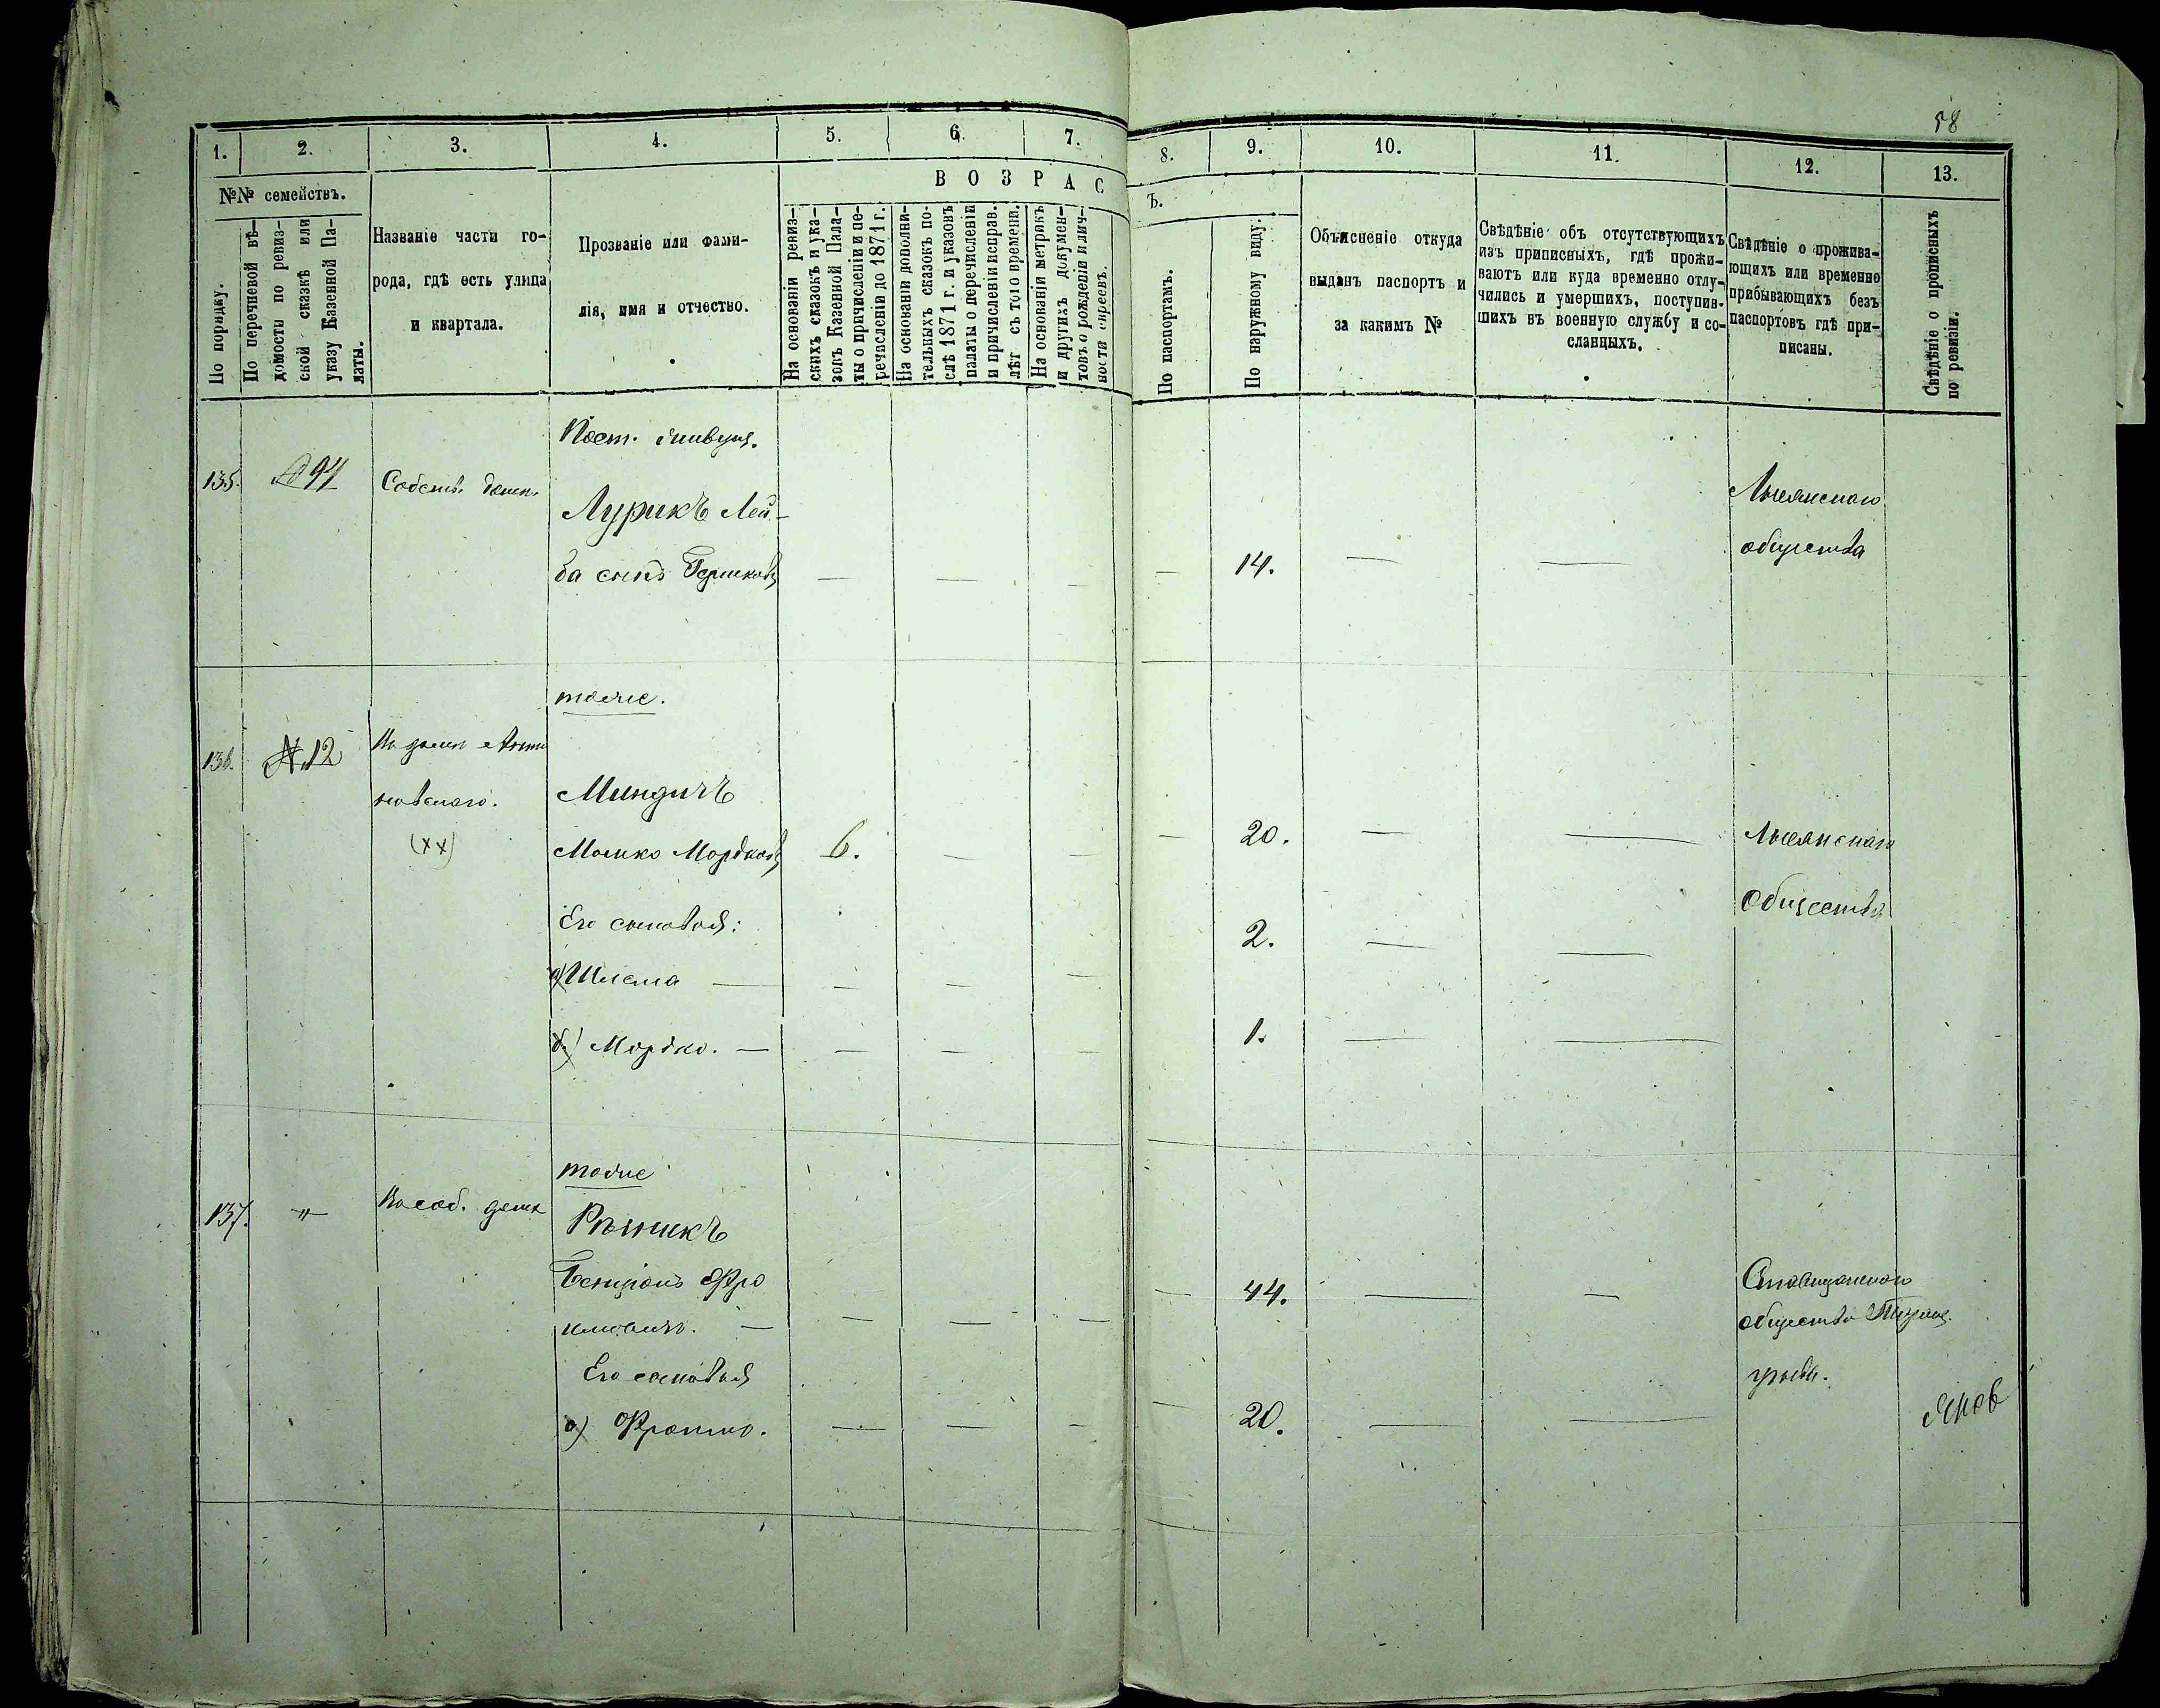 58
1. 2. 3. 4. 5. 6. 7. 8. 9. 10. 11. 12. 13.
№№ семействъ.
По порядку.
По перечневой вѣ-
домости по ревиз-
ской сказкѣ или
указу Казенной Па-
латы.
Названіе части го-
рода, гдѣ есть улица
и квартала.
Прозваніе или фами-
лія, имя и отчество.
ВОЗРАСТЪ.
На основаніи ревиз-
скихъ сказокъ и ука-
зовъ Казенной Пала-
ты о причисленіи и пе-
речисленіи до 1871 г.
На основаніи дополни-
тельныхъ сказокъ по-
слѣ 1871 г. и указовъ
палаты о перечисленіи
и причисленіи исправ.
лѣт съ того времени.
На основаніи метрикъ
и другихъ докумен-
товъ о рожденіи и лич-
ности евреевъ.
По паспортамъ.
По наружному виду.
Объясненіе откуда
выданъ паспортъ и
за какимъ №
Свѣдѣніе объ отсутствующихъ
изъ приписныхъ, гдѣ прожи-
ваютъ или куда временно отлу-
чились и умершихъ, поступив-
шихъ въ военную службу и со-
сланныхъ.
Свѣдѣніе о прожива-
ющихъ или временно
прибывающихъ безъ
паспортовъ гдѣ при-
писаны.
Свѣдѣніе о прописныхъ
по ревизіи.
Пост. живущ.
135. 94
Лурикъ Лей-
ба сынъ Гершковъ — — — — 14. — — Лысянскаго
общества
тоже.
136. №12
Миндичъ
(xx)
Мошко Мордковъ 6. — — — 20. — — Лысянскаго
общества
Его сыновья:
а) Шлема — — — — 2. — —
б) Мордко. — — — — 1. — —
тоже
137. "
Рѣзникъ
Бенціонъ Фро
имовичъ. — — — — — 44. — — Ставищанскаго
общества
Его сыновья
а) Фроимъ. — — — — 20. — —